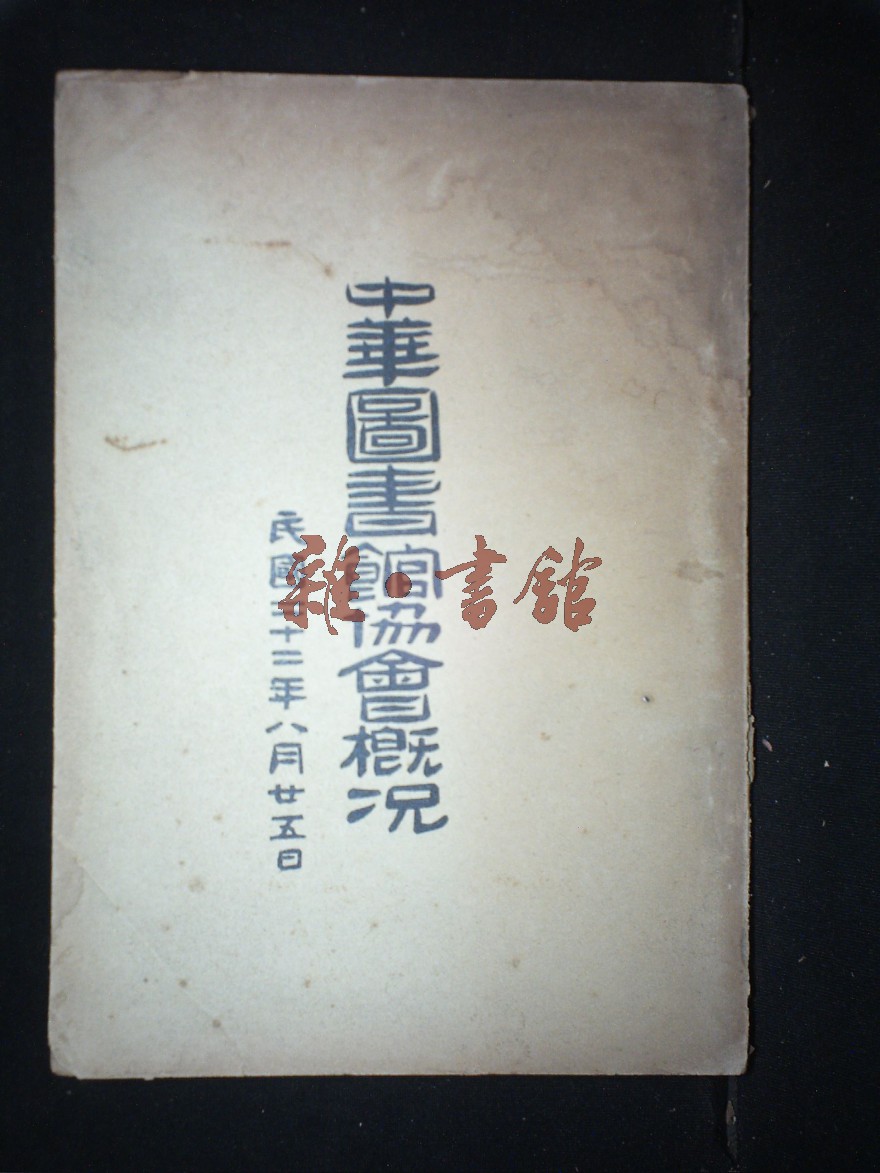 中華圖書館協會概况
民國二十二年八月廿五日
雜·書館